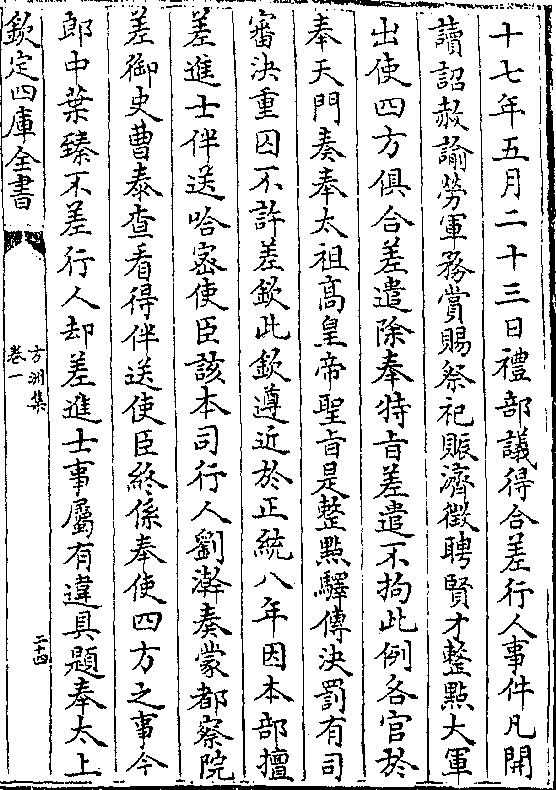 十七年五月二十三日禮部議得合差行人事件凡開
讀詔赦諭勞軍務賞賜祭祀賑濟徵聘賢才整點大軍
出使四方俱合差遣除奉特旨差遣不拘此例各官於
奉天門奏奉太祖高皇帝聖旨是整點驛傳決罰有司
審決重囚不許差欽此欽遵近於正統八年因本部擅
差進士伴送哈密使臣該本司行人劉澣奏蒙都察院
差御史曹泰查看得伴送使臣終係奉使四方之事今
郎中葉臻不差行人却差進士事屬有違具題奉太上
欽定四庫全書
方洲集
卷一
二十四